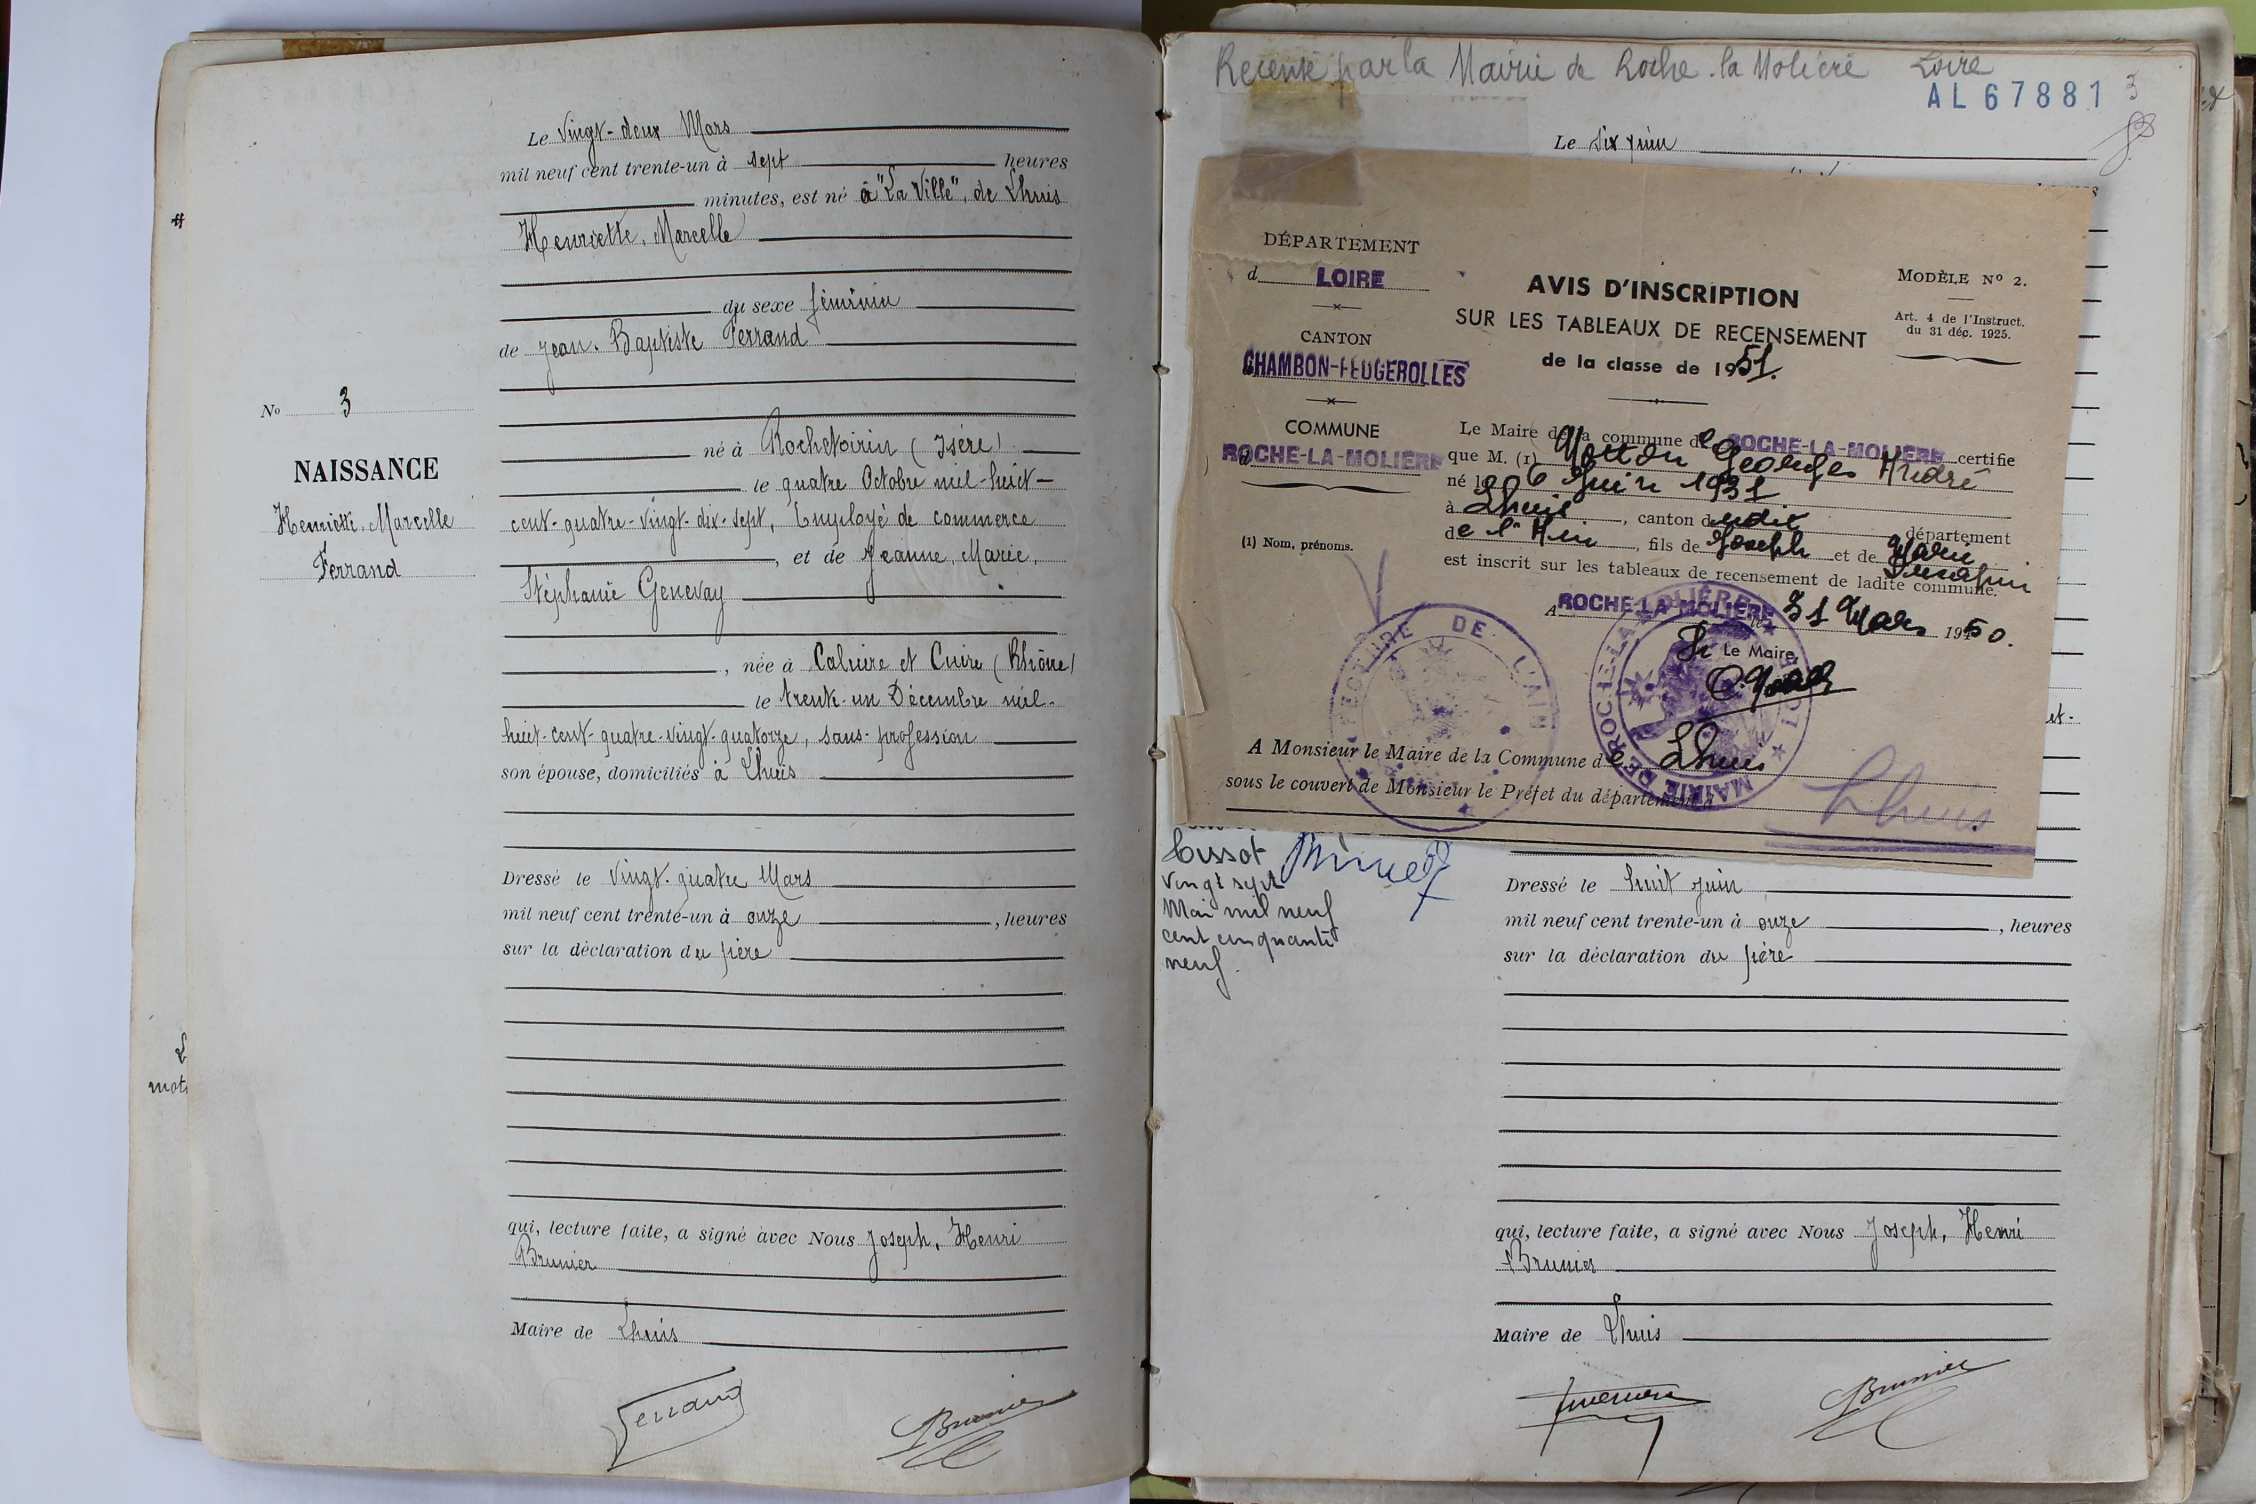 Le Vingt-deux Mars
mil neuf cent trente-un à sept heures
minutes, est né à "La Ville", de Lhuis
Henriette, Marcelle
du sexe féminin
de Jean-Baptiste Ferrand
né à Rochetoirin (Isère)
le quatre Octobre mil-huit-
cent-quatre-vingt-dix-sept, Employé de commerce
, et de Jeanne, Marie,
Stéphanie Genevay
, née à Caluire et Cuire (Rhône)
le trente-un Décembre mil-
huit-cent-quatre-vingt-quatorze, sans profession
son épouse, domiciliés à Lhuis
Dressé le Vingt-quatre Mars
mil neuf cent trente-un à onze , heures
sur la déclaration du père
qui, lecture faite, a signé avec Nous Joseph, Henri
Brunier
Maire de Lhuis
Ferrand
Brunier
No 3
NAISSANCE
Henriette Marcelle
Ferrand
mots
Recensé par la Mairie de Roche-la-Molière Loire
AL 67881
3
Le Six Juin
DÉPARTEMENT
d LOIRE
CANTON
CHAMBON-FEUGEROLLES
COMMUNE
d ROCHE-LA-MOLIÈRE
(1) Nom, prénoms.
AVIS D'INSCRIPTION
SUR LES TABLEAUX DE RECENSEMENT
de la classe de 1951.
MODÈLE No 2.
Art. 4 de l'Instruct.
du 31 déc. 1925.
Le Maire de la commune de ROCHE-LA-MOLIÈRE certifie
que M. (1) Georges André
né le 6 Juin 1931
à Lhuis, canton dudit département
de l'Ain, fils de Joseph et de Marie
est inscrit sur les tableaux de recensement de ladite commune.
A ROCHE-LA-MOLIÈRE le 31 Mars 1950.
Le Maire,
PRÉFECTURE DE L'AIN
MAIRIE DE ROCHE-LA-MOLIÈRE LOIRE
A Monsieur le Maire de la Commune de Lhuis
sous le couvert de Monsieur le Préfet du département
Lhuis
et-
Cissot
vingt sept
Mai mil neuf
cent cinquante
neuf.
Dressé le huit Juin
mil neuf cent trente-un à onze , heures
sur la déclaration du père
qui, lecture faite, a signé avec Nous Joseph, Henri
Brunier
Maire de Lhuis
Brunier